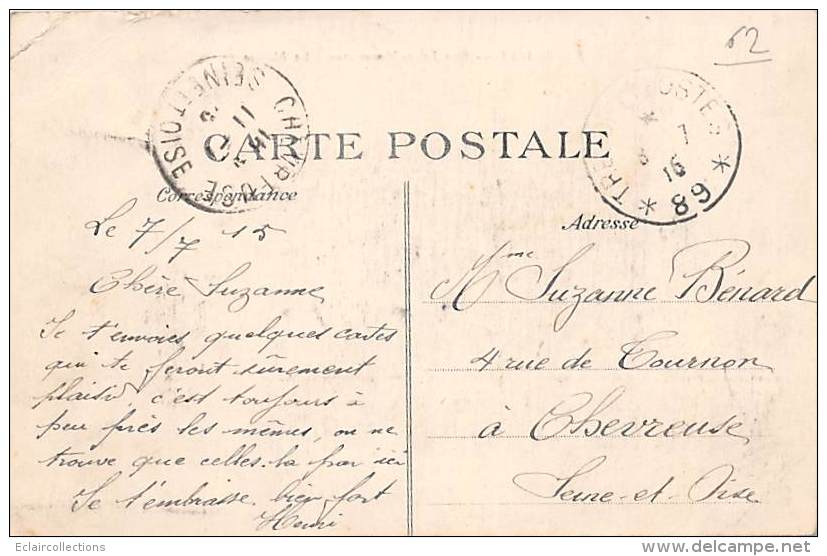 62
CHEVREUSE SEINE ET OISE
11
TRESOR ET POSTES
7
16
* 89 *
CARTE POSTALE
Correspondance
Adresse
Le 7/7 15
Chère Suzanne
Je t'envoies quelques cartes
qui te feront sûrement
plaisir c'est toujours à
peu près les mêmes, on ne
trouve que celles-la par ici
Je t'embrasse bien fort
Henri
Mme Suzanne Bénard
4 rue de Tournon
à Chevreuse
Seine-et-Oise
Eclaircollections
delcampe.net